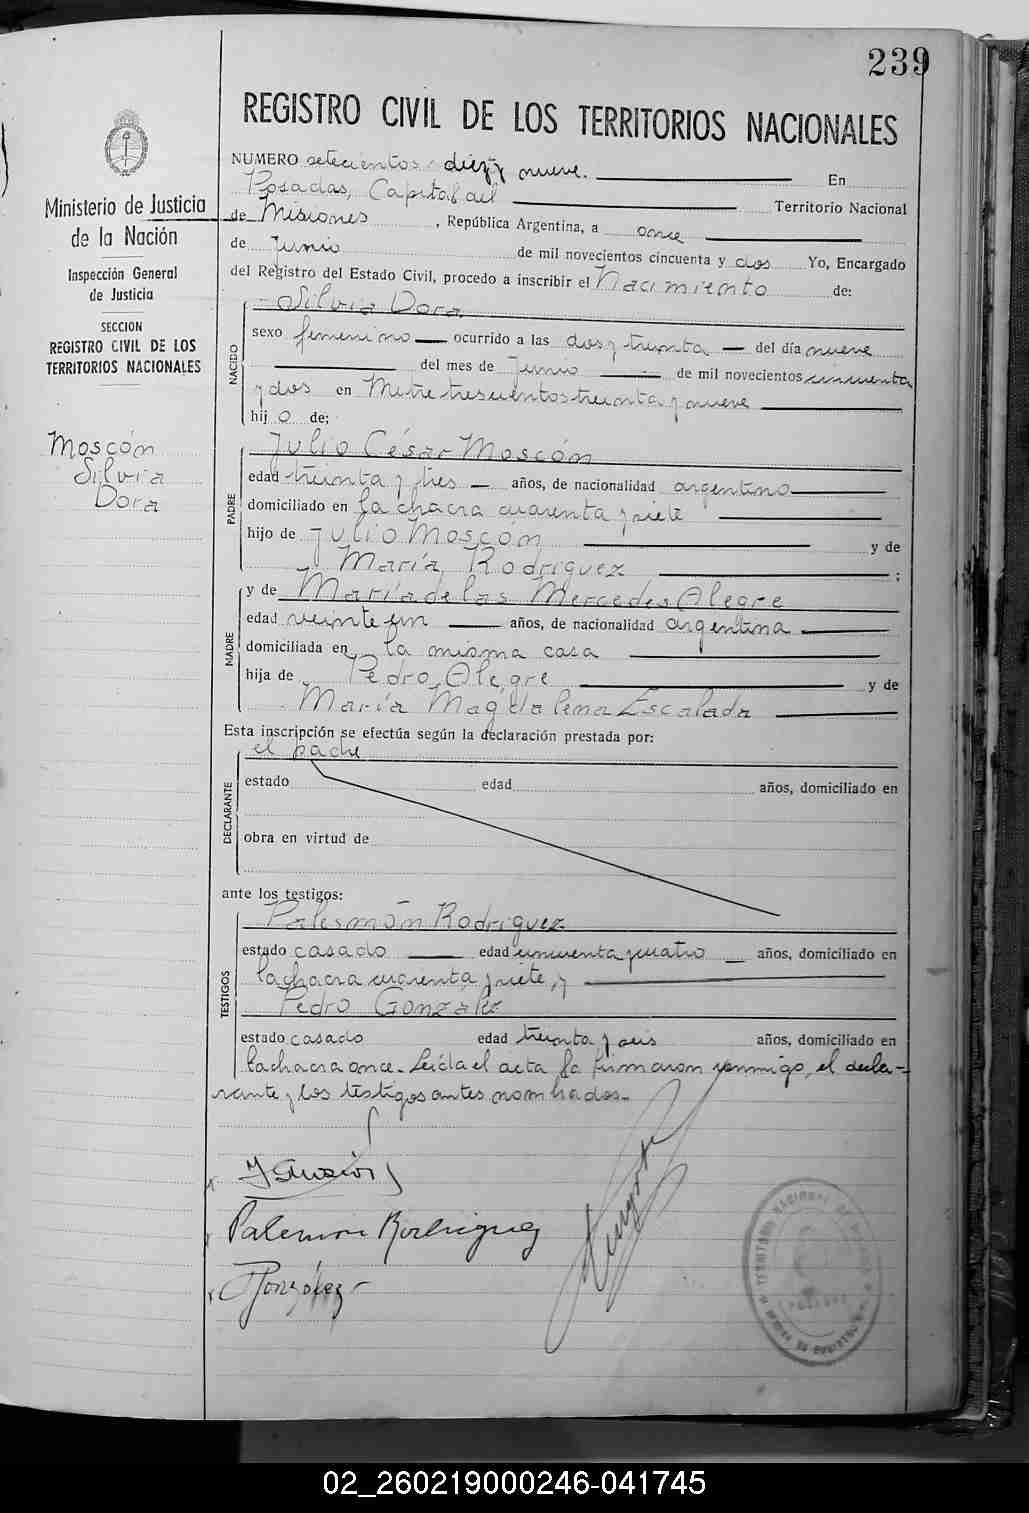 239
REGISTRO CIVIL DE LOS TERRITORIOS NACIONALES
Ministerio de Justicia
de la Nación
Inspección General
de Justicia
SECCION
REGISTRO CIVIL DE LOS
TERRITORIOS NACIONALES
Moscón
Silvia
Dora
NUMERO setecientos diez y nueve. En
Posadas, Capital del Territorio Nacional
de Misiones, República Argentina, a once
de Junio de mil novecientos cincuenta y dos Yo, Encargado
del Registro del Estado Civil, procedo a inscribir el Nacimiento de:
NACIDO
Silvia Dora
sexo femenino ocurrido a las dos y treinta del día nueve
del mes de Junio de mil novecientos cincuenta
y dos en Mitre trescientos treinta y nueve
hij o de:
PADRE
Julio César Moscón
edad treinta y tres años, de nacionalidad argentino
domiciliado en la chacra cuarenta y siete
hijo de Julio Moscón y de
María Rodríguez ;
MADRE
y de María de las Mercedes Alegre
edad veinte un años, de nacionalidad argentina
domiciliada en la misma casa
hija de Pedro Alegre y de
María Magdalena Escalada
Esta inscripción se efectúa según la declaración prestada por:
DECLARANTE
el padre
estado edad años, domiciliado en
obra en virtud de
ante los testigos:
TESTIGOS
Palesmón Rodriguez
estado casado edad cincuenta y cuatro años, domiciliado en
la chacra cuarenta y siete, y
Pedro Gonzalez
estado casado edad treinta y seis años, domiciliado en
la chacra once. Leída el acta la firmaron conmigo, el decla-
rante y los testigos antes nombrados.
Palemon Rodriguez
PGonzález
TERRITORIO NACIONAL DE MISIONES
POSADAS
02_260219000246-041745